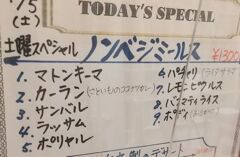 TODAY'S SPECIAL
(土)
土曜スペシャル ノンベジミールス ¥1300
1. マトンキーマ
2. カーラン(さといものココナツカレー)
3. サンバル
4. ラッサム
5. ポリヤル
6. パチャリ
7. レモンピクルス
8. バスマティライス
9. ポディ